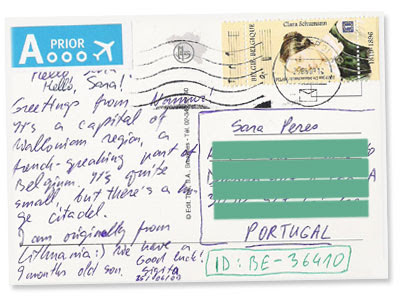 A PRIOR
Clara Schumann
BELGIE-BELGIQUE
1819-1896
Hello, Sara!
Greetings from Namur!
It's a capital of
Walloniam region, a
french-speaking part of
Belgium. It's quite
small, but there's a hu-
ge citadel.
I am originally from
Lithuania:) I've have a
9 months old son.
Good luck!
Sigita
Sara Peres
PORTUGAL
ID: BE-36410